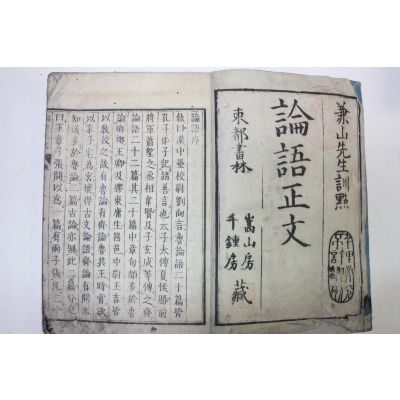 兼山先生訓點
論語正文
東都書林
嵩山房
千鍾房
藏
論語序
敘曰漢中壘校尉劉向言魯論語二十篇皆
孔子弟子記諸善言也太子太傅夏侯勝前
將軍蕭望之丞相韋賢及子玄成等傳之齊
論語二十二篇其二十篇中章句頗多於魯
論瑯琊王卿及膠東庸生昌邑中尉王吉皆
以教授之故有魯論有齊論魯共王時嘗欲
以孔子宅為宮壞得古文論語齊論有問王
知道多於魯論二篇古論亦無此二篇分堯
曰下章子張問以為一篇有兩子張凡二十